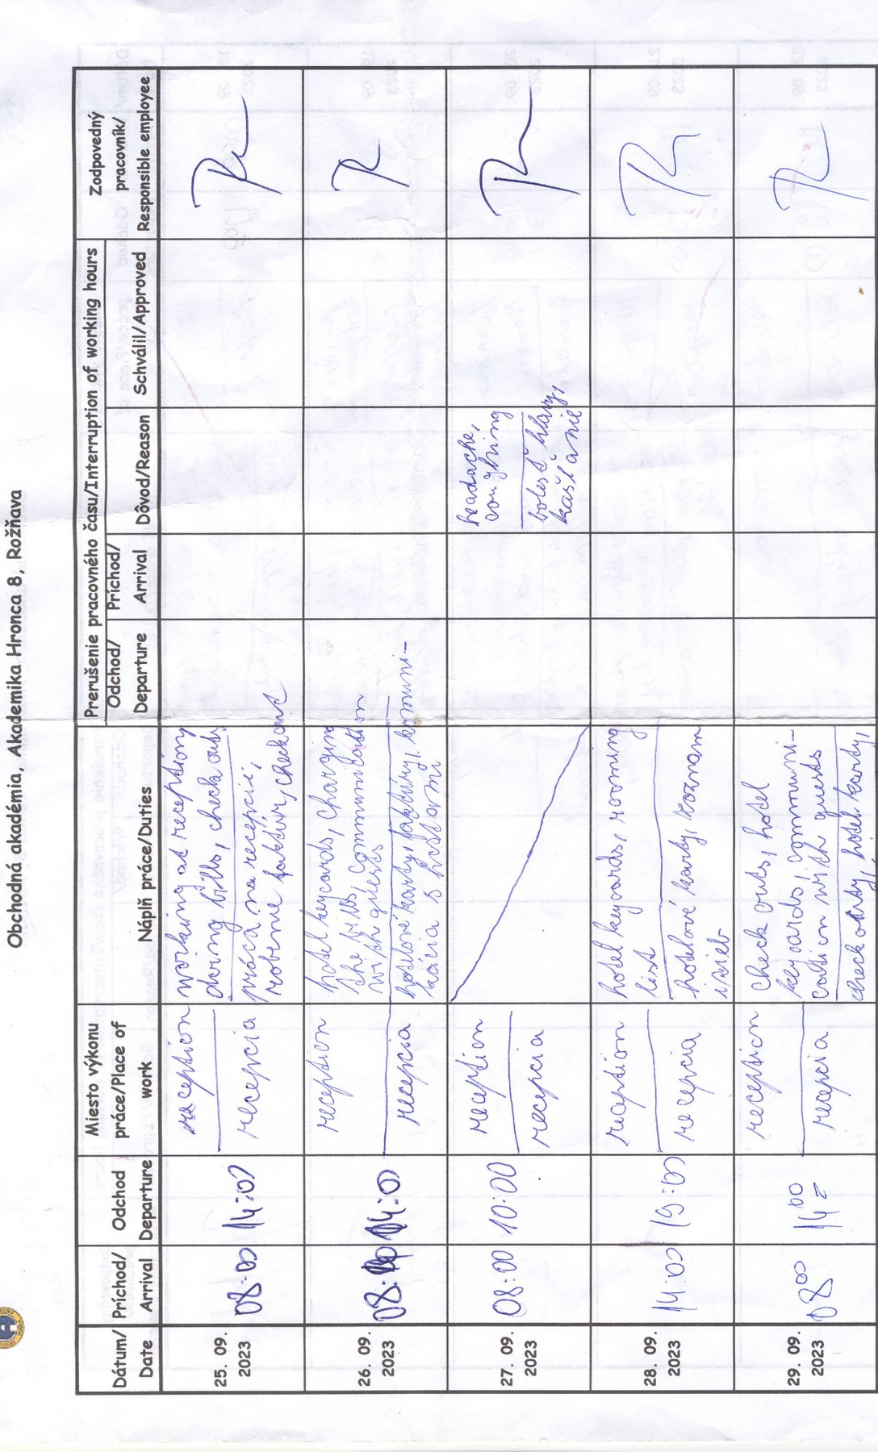 Obchodná akadémia, Akademika Hronca 8, Rožňava
Dátum/
Date
Príchod/
Arrival
Odchod
Departure
Miesto výkonu
práce/Place of
work
Náplň práce/Duties
Prerušenie pracovného času/Interruption of working hours
Odchod/
Departure
Príchod/
Arrival
Dôvod/Reason
Schválil/Approved
Zodpovedný
pracovník/
Responsible employee
25. 09.
2023
08:00
14:00
reception
recepcia
working at reception,
doing bills, check outs
práca na recepcii,
robenie faktúr, check out
26. 09.
2023
08:00
14:00
reception
recepcia
hotel keycards, charging
the bills, communication
with guests
hotelové karty, faktúry, komuni-
kácia s hosťami
27. 09.
2023
08:00
10:00
reception
recepcia
headache,
coughing
bolesť hlavy,
kašľanie
28. 09.
2023
14:00
19:00
reception
recepcia
hotel keycards, rooming
list
hotelové karty, zoznam
izieb
29. 09.
2023
08 00
14 00
reception
recepcia
check outs, hotel
keycards, communi-
cation with guests
check outy, hotel karty,